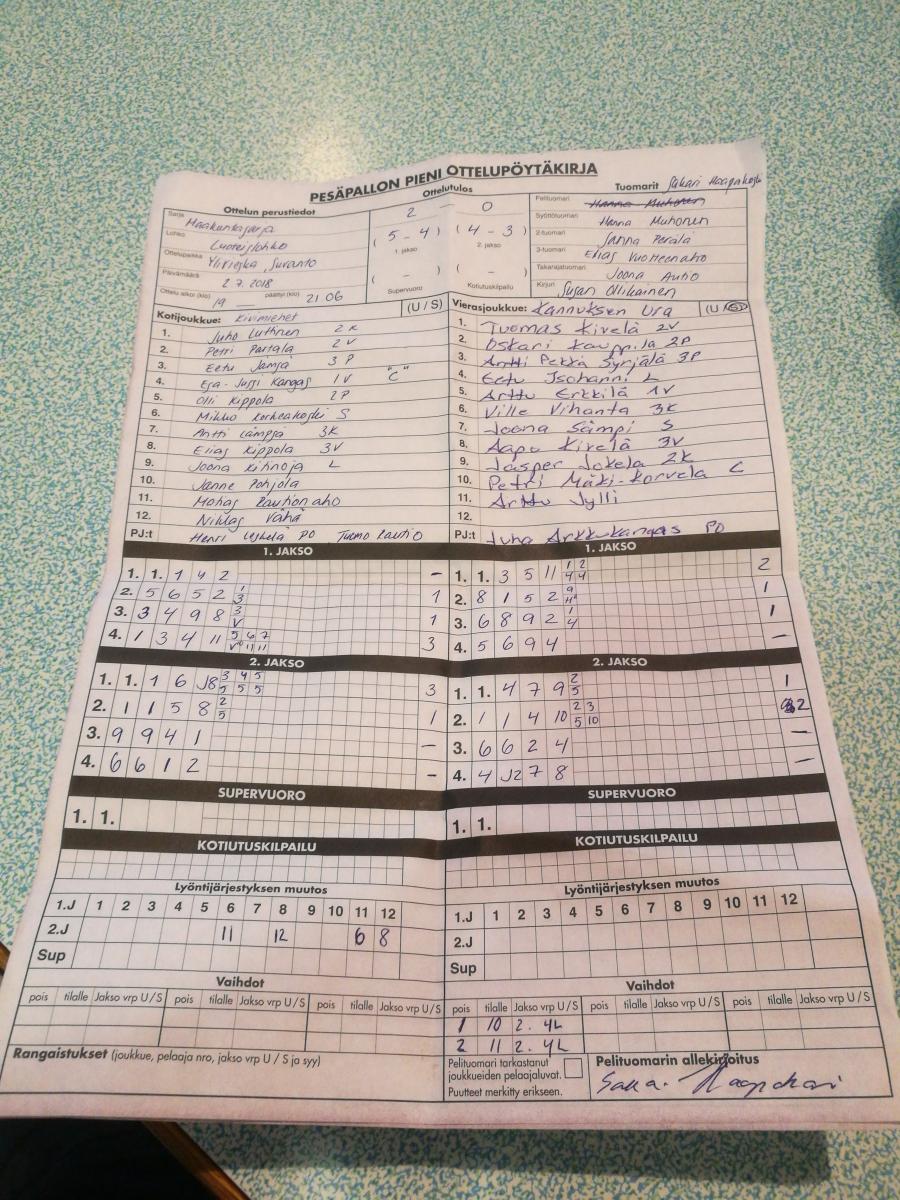 PESÄPALLON PIENI OTTELUPÖYTÄKIRJA
Ottelun perustiedot
Sarja Maakuntasarja
Lohko Luoteislohko
Ottelupaikka Ylivieska, Suvanto
Päivämäärä 2.7.2018
Ottelu alkoi (klo) 19 päättyi (klo) 21 06
Ottelutulos
2 – 0
( 5 - 4 ) ( 4 - 3 )
1. jakso 2. jakso
( - ) ( - )
Supervuoro Kotiutuskilpailu
Tuomarit Sakari Haapakoski
Pelituomari Hanna Muhonen
Syöttötuomari Hanna Muhonen
2-tuomari Sanna Perälä
3-tuomari Elias Vuotteenaho
Takarajatuomari Joona Autio
Kirjuri Susan Ollikainen
Kotijoukkue: Kivimiehet (U / S)
1. Juho Luttinen 2K
2. Petri Partala 2V
3. Eetu Jämsä 3P
4. Esa-Jussi Kangas 1V "C"
5. Olli Kippola 2P
6. Mikko Korkeakoski S
7. Antti Lämpsä 3K
8. Elias Kippola 3V
9. Joona Kihnoja L
10. Janne Pohjola
11. Matias Rautionaho
12. Niklas Vähä
PJ:t Henri PO Tuomo Rautio
Vierasjoukkue: Kannuksen Ura (U / S)
1. Tuomas Kivelä 2V
2. Oskari Kauppila 2P
3. Antti Pekka Syrjälä 3P
4. Eetu Isohanni L
5. Arttu Erkkilä 1V
6. Ville Vihanta 3K
7. Joona Sämpi S
8. Aapo Kivelä 3V
9. Jasper Jokela 2K
10. Petri Mäki-Korvela C
11. Arttu Jylli
12.
PJ:t Juha Arkkukangas PO
1. JAKSO
1. 1. 1 4 2 –
2. 5 6 5 2 1/3 1
3. 3 4 9 8 3/V 1
4. 1 3 4 11 5 6 7 3
1. JAKSO
1. 1. 3 5 11 1/4 2/4 2
2. 8 1 5 2 1
3. 6 8 9 2 1/4 1
4. 5 6 9 4 –
2. JAKSO
1. 1. 1 6 J8 3/5 4/5 5/5 3
2. 1 1 5 8 2/5 1
3. 9 9 4 1 –
4. 6 6 1 2 –
2. JAKSO
1. 1. 4 7 9 2/5 1
2. 1 1 4 10 2/5 3/10 2
3. 6 6 2 4 –
4. 4 J2 7 8 –
SUPERVUORO
1. 1.
SUPERVUORO
1. 1.
KOTIUTUSKILPAILU
KOTIUTUSKILPAILU
Lyöntijärjestyksen muutos
1.J 1 2 3 4 5 6 7 8 9 10 11 12
2.J 11 12 6 8
Sup
Lyöntijärjestyksen muutos
1.J 1 2 3 4 5 6 7 8 9 10 11 12
2.J
Sup
Vaihdot
pois tilalle Jakso vrp U / S pois tilalle Jakso vrp U / S pois tilalle Jakso vrp U / S
Vaihdot
pois tilalle Jakso vrp U / S pois tilalle Jakso vrp U / S pois tilalle Jakso vrp U / S
1 10 2. 4L
2 11 2. 4L
Rangaistukset (joukkue, pelaaja nro, jakso vrp U / S ja syy)
Pelituomari tarkastanut
joukkueiden pelaajaluvat.
Puutteet merkitty erikseen.
Pelituomarin allekirjoitus